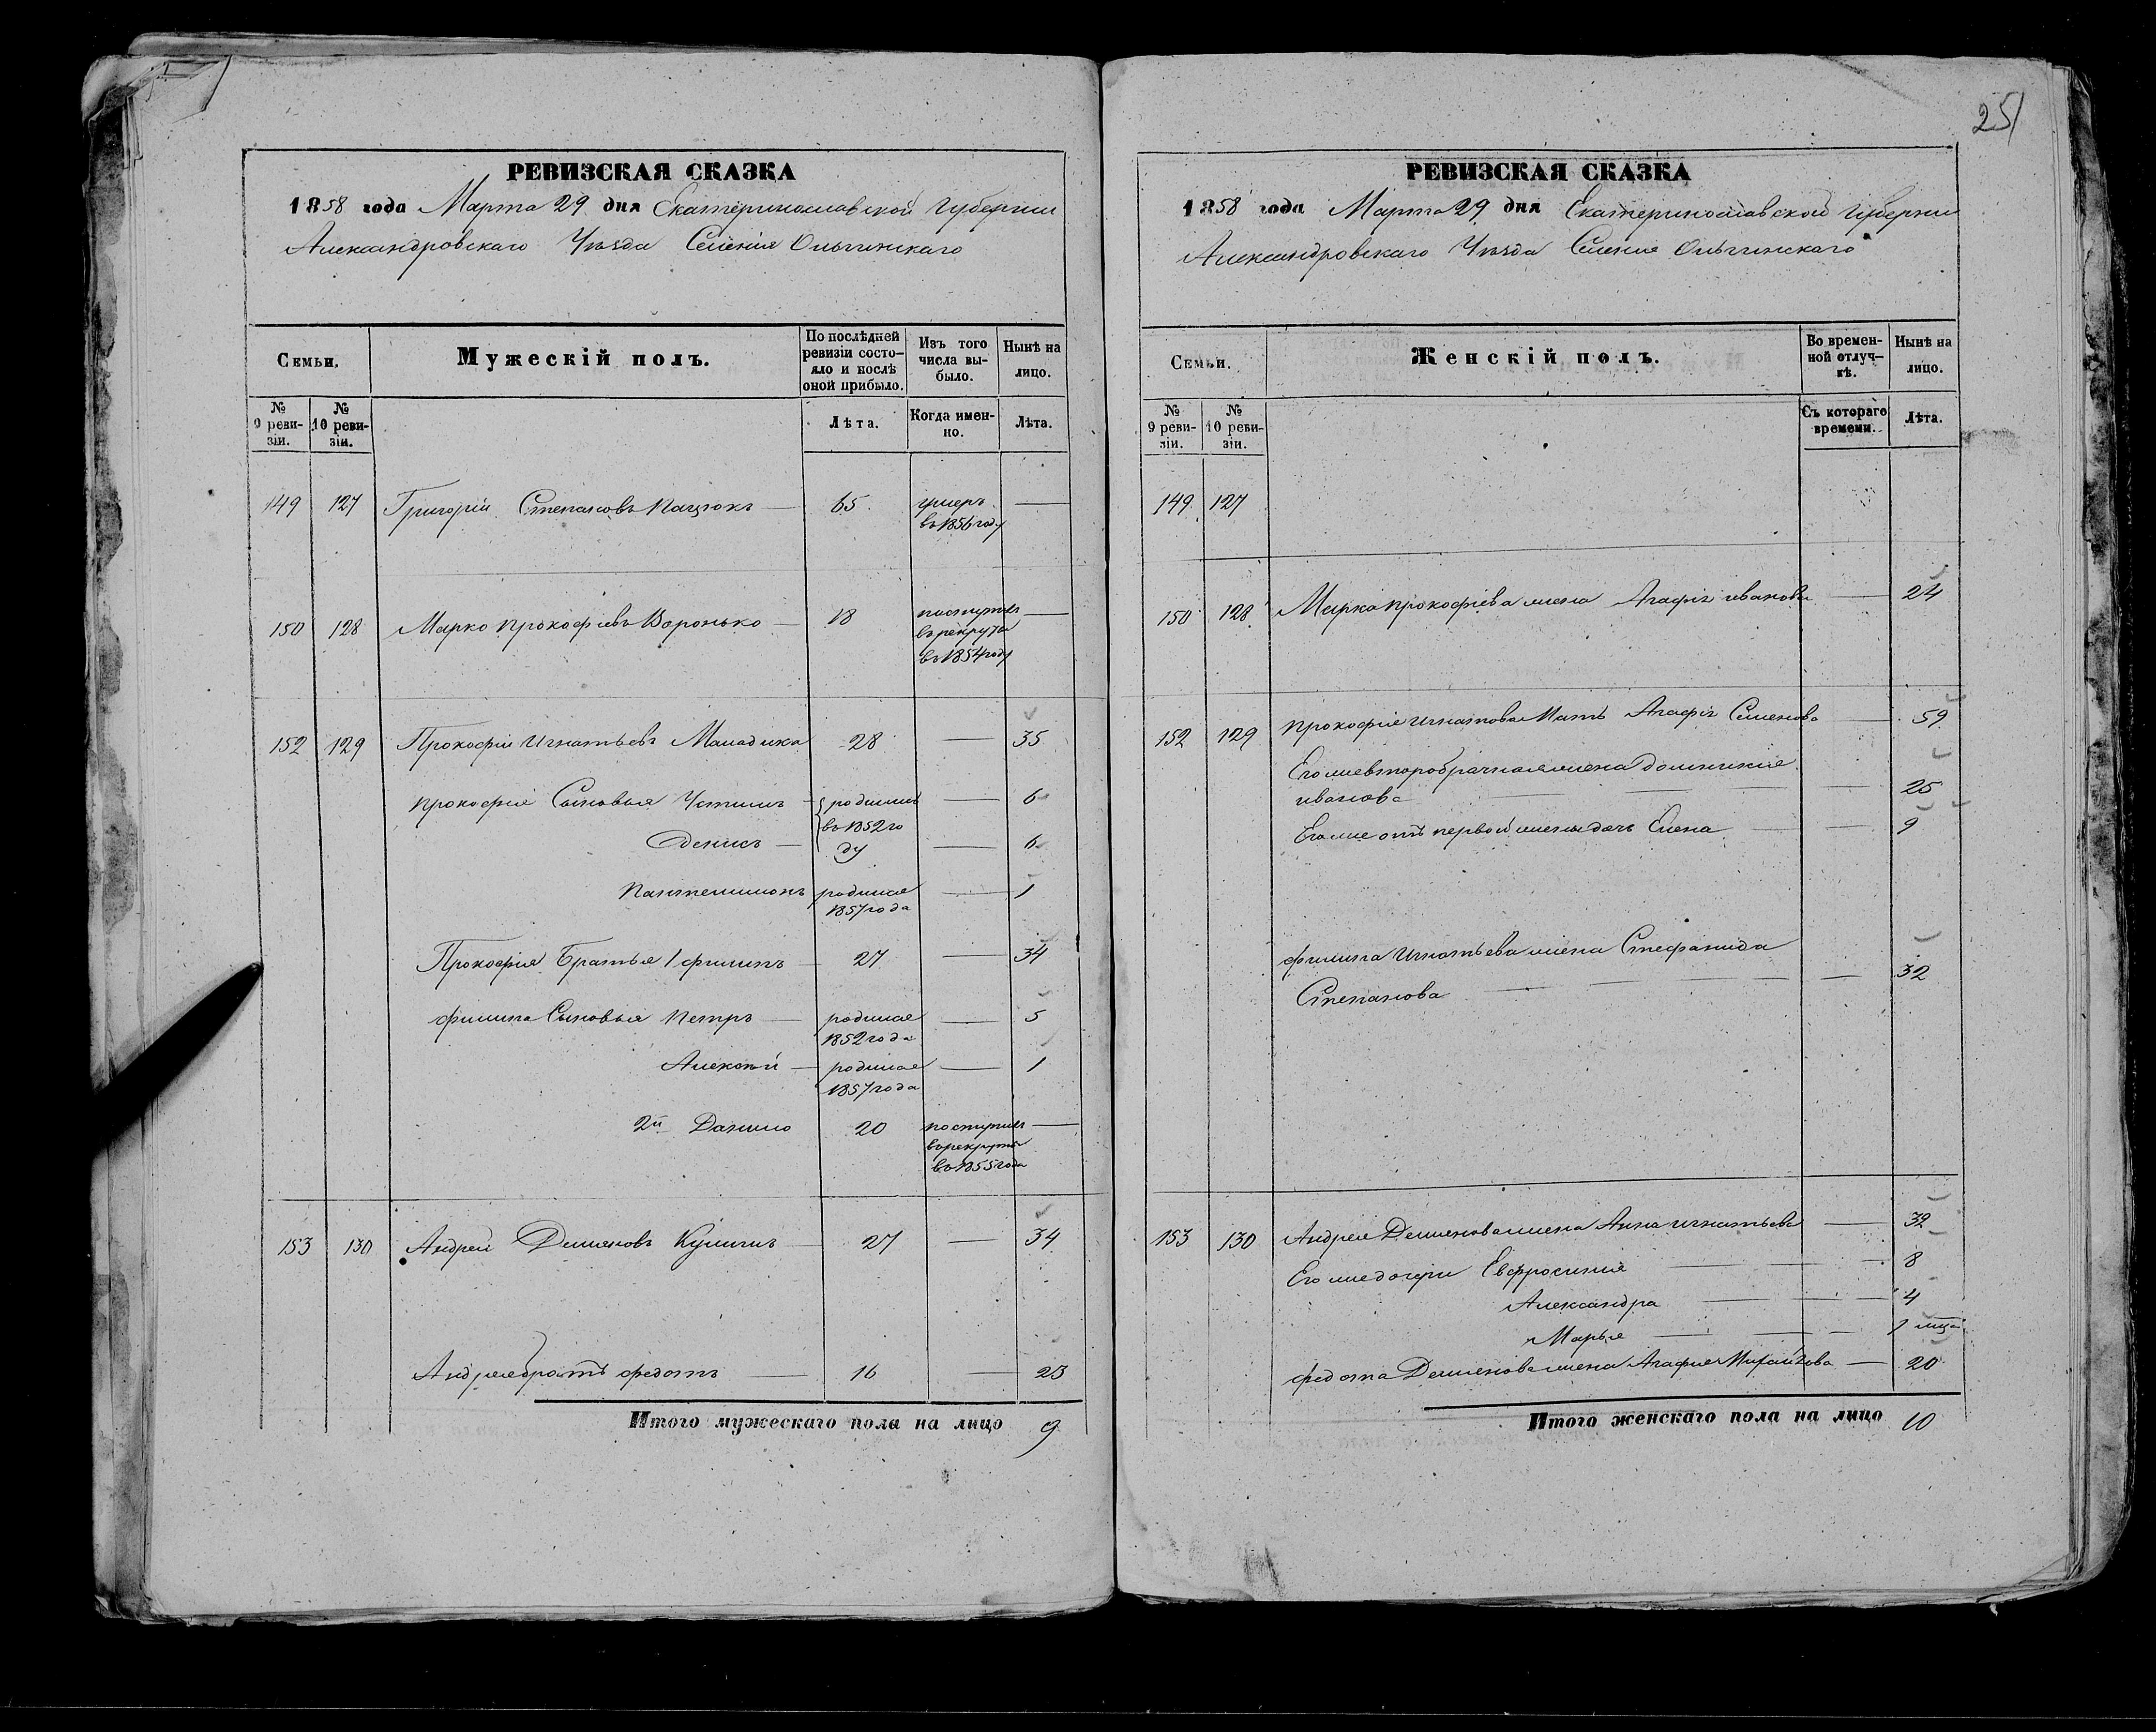 РЕВИЗСКАЯ СКАЗКА
1858 года Марта 29 дня Екатеринославской Губернии
Александровскаго Уѣзда Селенія Ольгинскаго
Семьи.
Мужескій полъ.
По послѣдней ревизіи состояло и послѣ оной прибыло.
Изъ того числа выбыло.
Нынѣ на лицо.
№ 9 ревизіи.
№ 10 ревизіи.
Лѣта.
Когда именно.
Лѣта.
149 127 Григорій Степановъ Пацюкъ — 65. умеръ въ 1856 году —
150 128 Марко Прокофьевъ Воронько — 18 поступилъ въ рекруты въ 1854 году —
152 129 Прокофій Игнатьевъ Маладика 28 — 35
Прокофія Сыновья Устимъ — родились въ 1852 году — 6
Денисъ — — 6
Пантелимонъ родился 1857 года — 1
Прокофія Братья 1 филипъ — 27 — 34
филипа Сыновья Петръ — родился 1852 года — 5
Алексѣй — родился 1857 года — 1
2й Данило 20 поступилъ въ рекруты въ 1855 года —
153 130 Андрей Демяновъ Куличъ — 27 — 34
Андрея братъ федотъ — 16 — 23
Итого мужескаго пола на лицо 9
251
РЕВИЗСКАЯ СКАЗКА
1858 года Марта 29 дня Екатеринославской Губерніи
Александровскаго Уѣзда Селенія Ольгинскаго
Семьи.
Женскій полъ.
Во временной отлучкѣ.
Нынѣ на лицо.
№ 9 ревизіи.
№ 10 ревизіи.
Съ котораго времени.
Лѣта.
149 127
150 128 Марка Прокофіева жена Агафія иванова — 24
152 129 Прокофія Игнатова Мать Агафія Семенова — 59
Его же второбрачная жена Домникія
иванова — — — — 25
Его же отъ первой жены дочь Елена — — 9
филипа Игнатьева жена Стефанида
Степанова — — — — 32
153 130 Андрея Демянова жена Анна игнатьева — 32
Его же дочери Евфросинія — — — 8
Александра — — — 4
Марья — — — 1 мца
федота Демянова жена Агафия Михайлова — 20
Итого женскаго пола на лицо 10